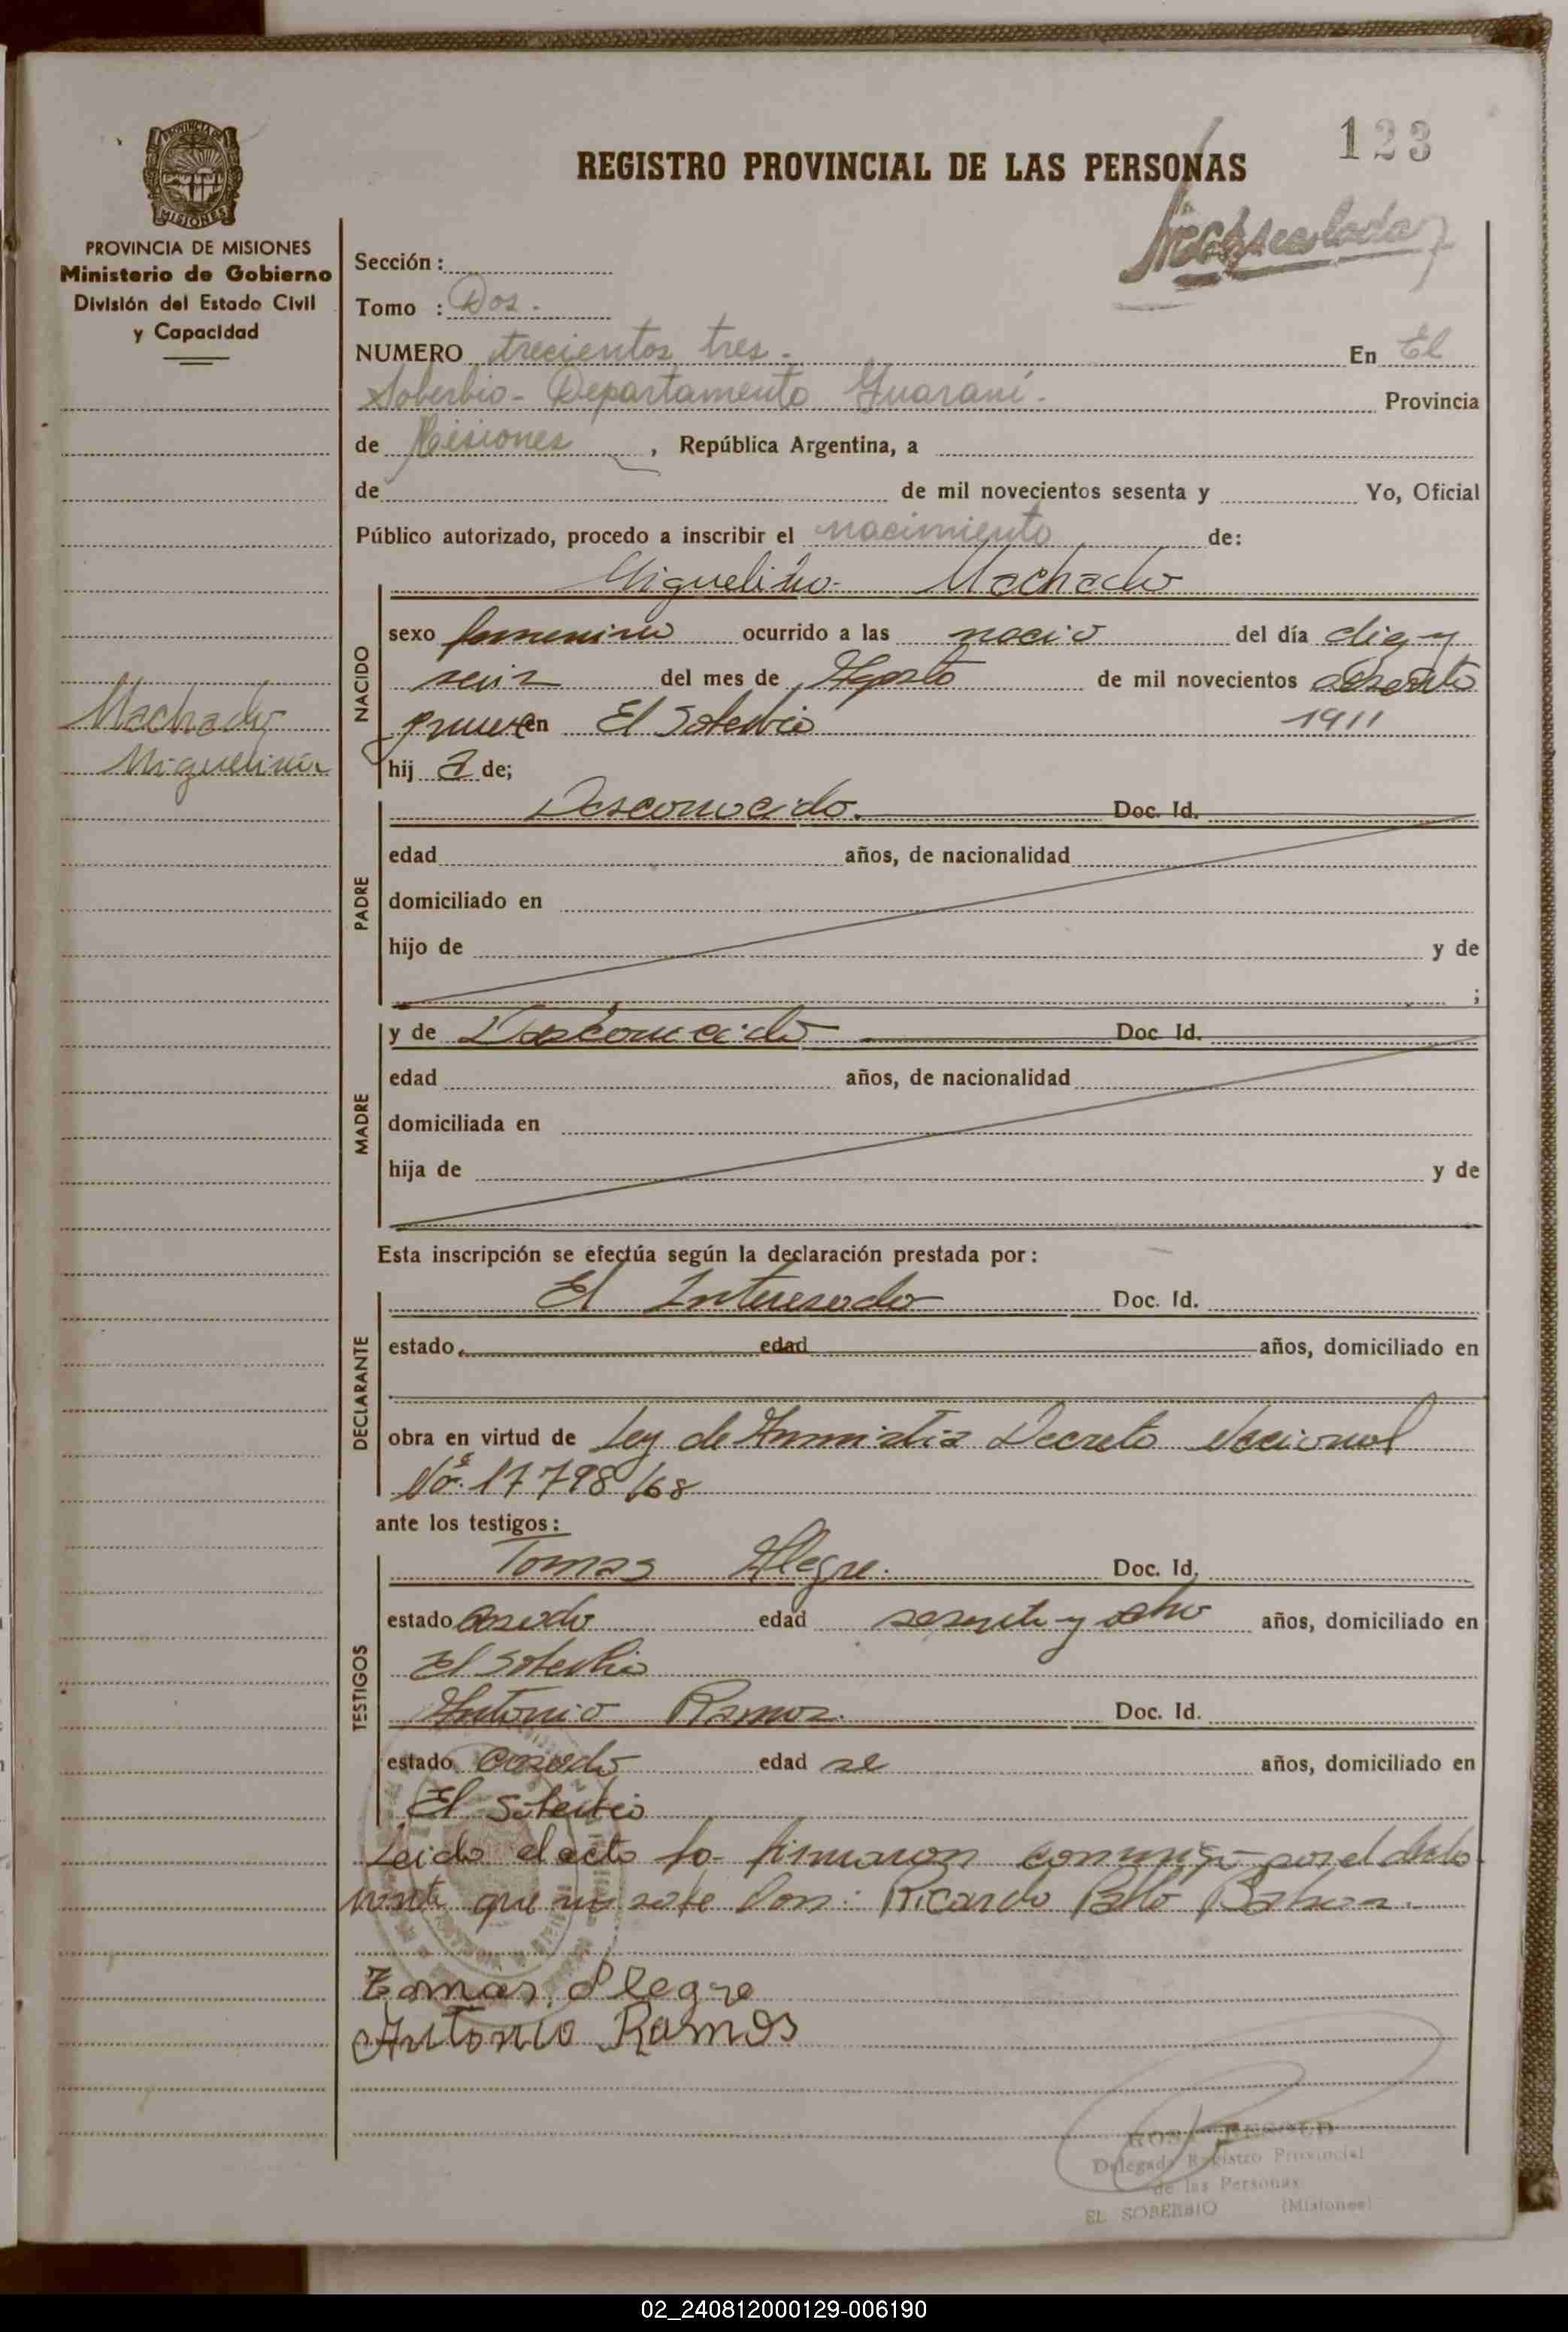 123
REGISTRO PROVINCIAL DE LAS PERSONAS
PROVINCIA DE MISIONES
Ministerio de Gobierno
División del Estado Civil
y Capacidad
Sección :
Tomo : Dos.
NUMERO trecientos tres. En El
Soberbio - Departamento Guaraní. Provincia
de Misiones , República Argentina, a
de de mil novecientos sesenta y Yo, Oficial
Público autorizado, procedo a inscribir el nacimiento de:
Machado
Miguelina
NACIDO
Miguelina Machado
sexo femenino ocurrido a las nacio del día diez y
seis del mes de Agosto de mil novecientos
en El Soberbio 1911
hij a de;
PADRE
Desconocido. Doc. Id.
edad años, de nacionalidad
domiciliado en
hijo de y de
;
MADRE
y de Desconocido Doc. Id.
edad años, de nacionalidad
domiciliada en
hija de y de
Esta inscripción se efectúa según la declaración prestada por :
DECLARANTE
El Interesado Doc. Id.
estado edad años, domiciliado en
obra en virtud de Ley de Amnistia Decreto Nacional
No. 17798/68
ante los testigos :
TESTIGOS
Tomas Alegre. Doc. Id.
estado Casado edad sesenta y ocho años, domiciliado en
El Soberbio
Antonio Ramos. Doc. Id.
estado Casado edad años, domiciliado en
El Soberbio
Leido el acta la firmaron conmigo por el decla
rante que no sabe Don: Ricardo
Tomas Alegre
Antonio Ramos
Delegada Registro Provincial
de las Personas
EL SOBERBIO (Misiones)
02_240812000129-006190